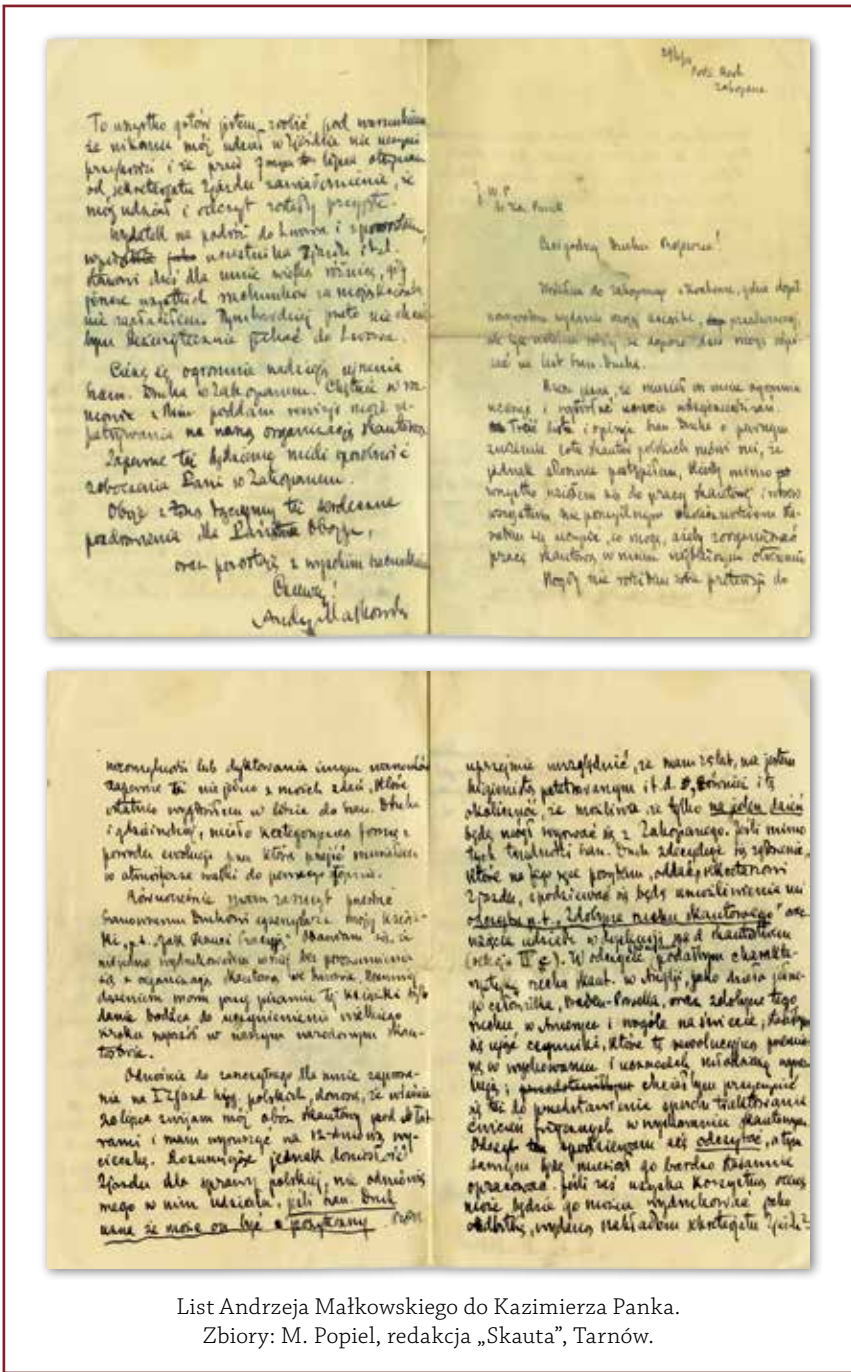 To wszystko gotów jestem zrobić pod warunkiem
że nikomu mój udział w Zjeździe nie uczyni
przykrości i że przed lipca otrzymam
od sekretarjatu Zjazdu zawiadomienie, że
mój udział i odczyt zostały przyjęte.
Wydatek na podróż do Lwowa i z powrotem,
uczestnika Zjazdu i t.d.
stanowi dziś dla mnie wielką różnicę, gdyż
jeszcze wszystkich rachunków za moją książkę
nie zapłaciłem. Tymbardziej przeto nie chciał
bym bezużytecznie jechać do Lwowa.
Cieszę się ogromnie nadzieją ujrzenia
Szan. Druha w Zakopanem. Chętnie w roz
mowie z Nim poddam rewizji moje za
patrywania na naszą organizację skautową.
Zapewne też będziemy mieli sposobność
zobaczenia Pani w Zakopanem.
Oboje z żoną łączymy też serdeczne
pozdrowienia dla Państwa Obojga,
oraz pozostaję z wysokim szacunkiem
Czuwaj!
Andrzej Małkowski
Zakopane
J. W. P.
Panek
Czcigodny Druhu Profesorze!
Wróciłem do Zakopanego z Krakowa, gdzie dopil
nowałem wydania swojej książki,
tak że dopiero dziś mogę odpi
sać na list Szan. Druha.
Treść listu i opinje Szan. Druha o pewnym
znużeniu skautów polskich mówi mi, że
jednak słusznie postąpiłem, kiedy mimo
wszystko wziąłem się do pracy skautowej i wbrew
wszystkim niepomyślnym okolicznościom sta
rałem się uczynić, co mogę, ażeby zorganizować
pracę skautową w moim najbliższym otoczeniu
Nigdy nie rościłem sobie pretensji do
nieomylności lub dyktowania innym warunków
Zapewne też nie jedno z moich zdań, które
ostatnio wygłosiłem w liście do Szan. Druha
i gdzieindziej, miało kategoryczną formę z
powodu ewolucji którą przejść musiałem
w atmosferze walki do pewnego stopnia.
Równocześnie mam zaszczyt przesłać
Szanownemu Druhowi egzemplarz mojej książ
ki, p.t. „Jak skauci pracują". Obawiam się, że
niejedno wydrukowałem w niej bez porozumienia
się z organizacją skautową we Lwowie.
dążeniem moim przy pisaniu tej książki było
danie bodźca do uczynienia wielkiego
kroku naprzód w naszym narodowym skau
tostwie.
Odnośnie do zaszczytnego dla mnie zaprosze
nia na I Zjazd hyg. polskich, donoszę, że właśnie
20 lipca zwijam mój obóz skautowy pod Ta
trami i mam wyruszyć na 12-dniową wy
cieczkę. Rozumiejąc jednak doniosłość
Zjazdu dla sprawy polskiej, nie odmówię
mego w nim udziału, jeśli Szan. Druh
uzna że może on być z pożytkiem
uprzejmie uwzględnić, że mam 25 lat, nie jestem
higienistą patentowanym i t. d. Również i tę
okoliczność, że możliwe że tylko na jeden dzień
będę mógł wyrwać się z Zakopanego. Jeśli mimo
tych trudności Szan. Druh zdecyduje się zgłoszenie,
które na jego ręce posyłam, oddać sekretarzowi
Zjazdu, spodziewać się będę umożliwienia mi
odczytu p.t. „Zdobycze ruchu skautowego" oraz
wzięcia udziału w dyskusji nad skautostwem
(sekcja II c). W odczycie podałbym charakte
rystykę ruchu skaut. w Anglji, jako dzieła jedne
go człowieka, Baden-Powella, oraz zdobycze tego
ruchu w Ameryce i wogóle na świecie, starałbym
się ująć czynniki, które tę rewolucyjną przemia
nę w wychowaniu i uczuciach młodzieży wywo
łują; chciałbym przyczynić
się też do przedstawienia sposobu traktowania
ćwiczeń fizycznych w wychowaniu skautowym.
Odczyt spodziewam się odczytać, a tym
samym będę musiał go bardzo starannie
opracować. Jeśli zaś uzyska korzystną ocenę
może będzie go można wydrukować jako
odbitkę, wydaną nakładem sekretarjatu Zjazdu?
List Andrzeja Małkowskiego do Kazimierza Panka.
Zbiory: M. Popiel, redakcja „Skauta”, Tarnów.